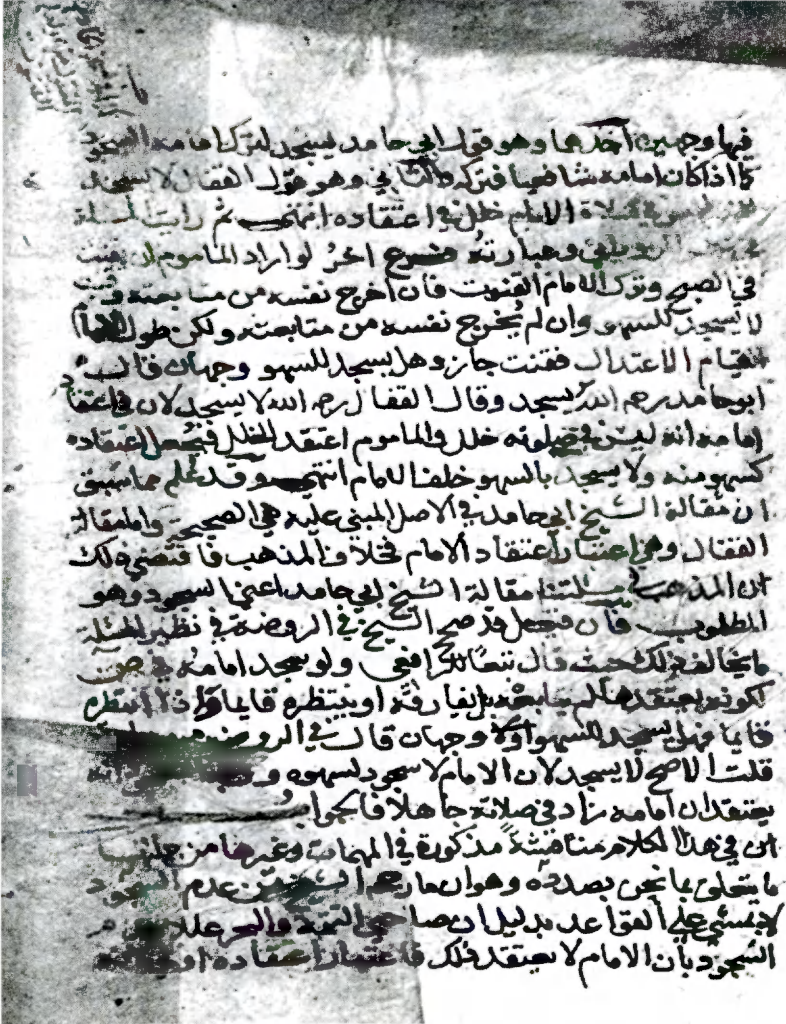 فيها وجهين احدهما وهو قول ابي حامد يسجد لترك امامه السجود
كما اذا كان امامه شافعيا فتركه والثاني وهو قول القفال لا يسجد
في صلاة الامام خلل في اعتقاده انتهى ثم رايت المسلة
في وعبارته فرع اخر لو اراد الماموم ان يقنت
في الصبح وترك الامام القنوت فان اخرج نفسه من متابعته وقنت
لا يسجد للسهو وان لم يخرج نفسه من متابعته ولكن طول الامام
القيام الاعتدال فقنت جاز وهل يسجد للسهو وجهان قال
ابو حامد رحمه الله يسجد وقال القفال رحمه الله لا يسجد لان في اعتقاد
امامه انه ليس في صلوته خلل والماموم اعتقد الخلل فيجعل اعتقاده
كسهو منه ولا يسجد بالسهو خلف الامام انتهى وقد علم مما سبق
ان مقالة الشيخ ابي حامد في الاصل المبني عليه هي الصحيحة واما مقالة
القفال وهو اعتبار اعتقاد الامام فخلاف المذهب فاقتضى ذلك
ان المذهب في مسلتنا مقالة الشيخ ابي حامد اعني السجود وهو
المطلوب فان قيل قد صحح الشيخ في الروضة في نظير المسلة
ما يخالف ذلك حيث قال تبعا للرافعي ولو سجد امامه في ص
لكونه يعتقدها لم يتابعه بل يفارقه او ينتظره قايما واذا انتظره
قايما فهل يسجد للسهو او لا وجهان قال في الروضة
قلت الاصح لا يسجد لان الامام لا سجود لسهوه
يعتقد ان امامه زاد في صلاته جاهلا فالجواب
ان في هذا الكلام مناقشة مذكورة في المهمات وغيرها من جملتها
ما يتعلق بما نحن بصدده وهو ان ما رجحه الشيخ من عدم السجود
لا يمشي على القواعد بدليل ان صاحبي التتمة والبحر عللا
السجود بان الامام لا يعتقد ذلك فاعتبار اعتقاده